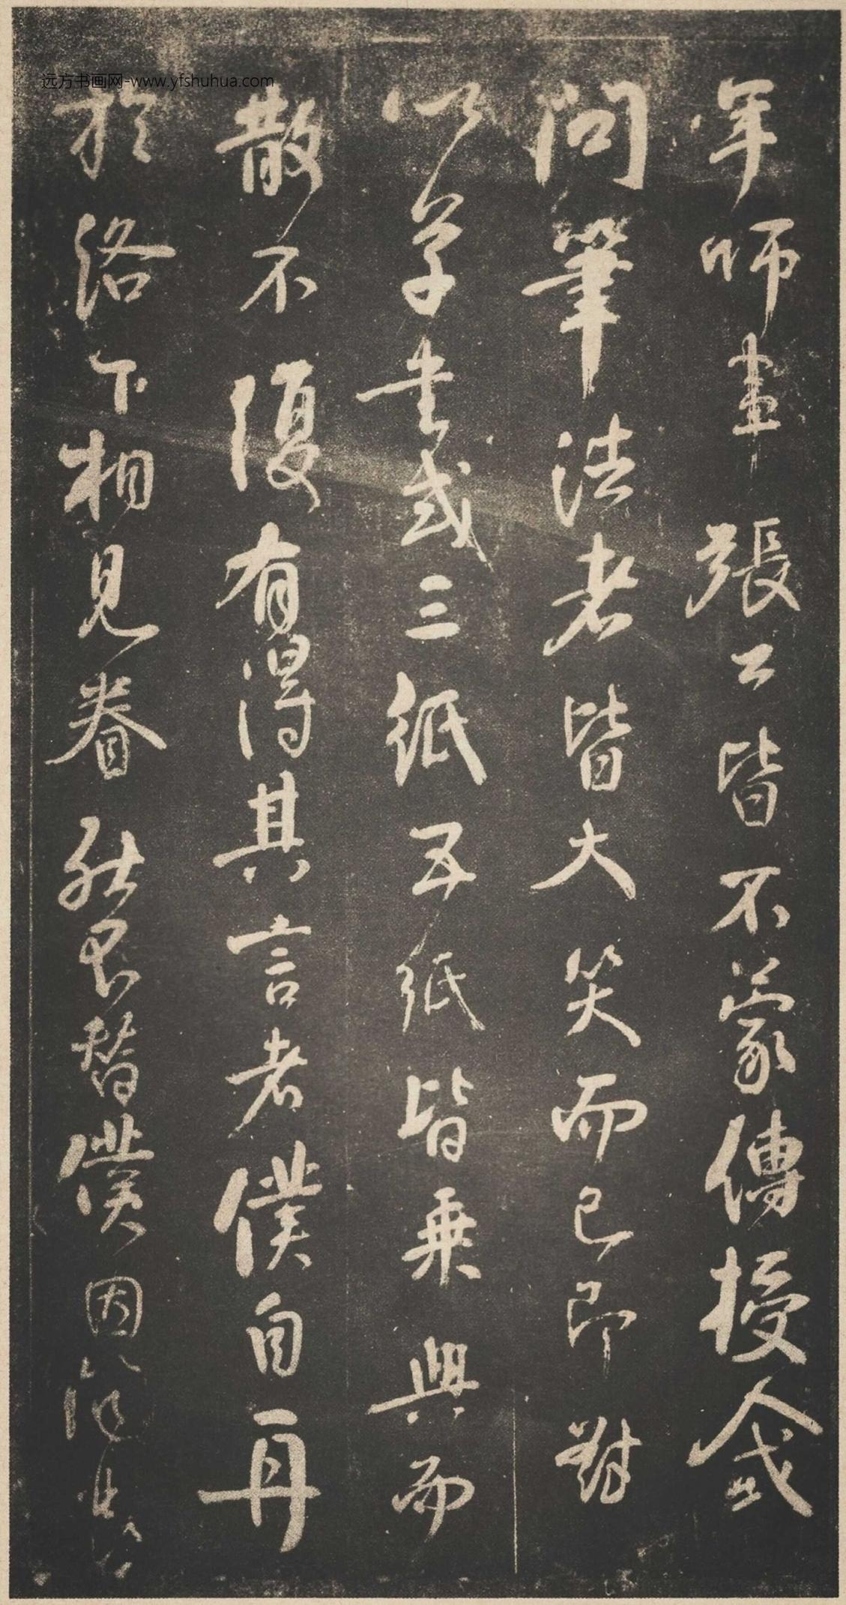 远方书画网-www.yfshuhua.com
年師張公皆不蒙傳授人或
問筆法者皆大笑而已即對
以草書或三紙五紙皆乘興而
散不復有得其言者僕自再
於洛下相見眷然不替僕因